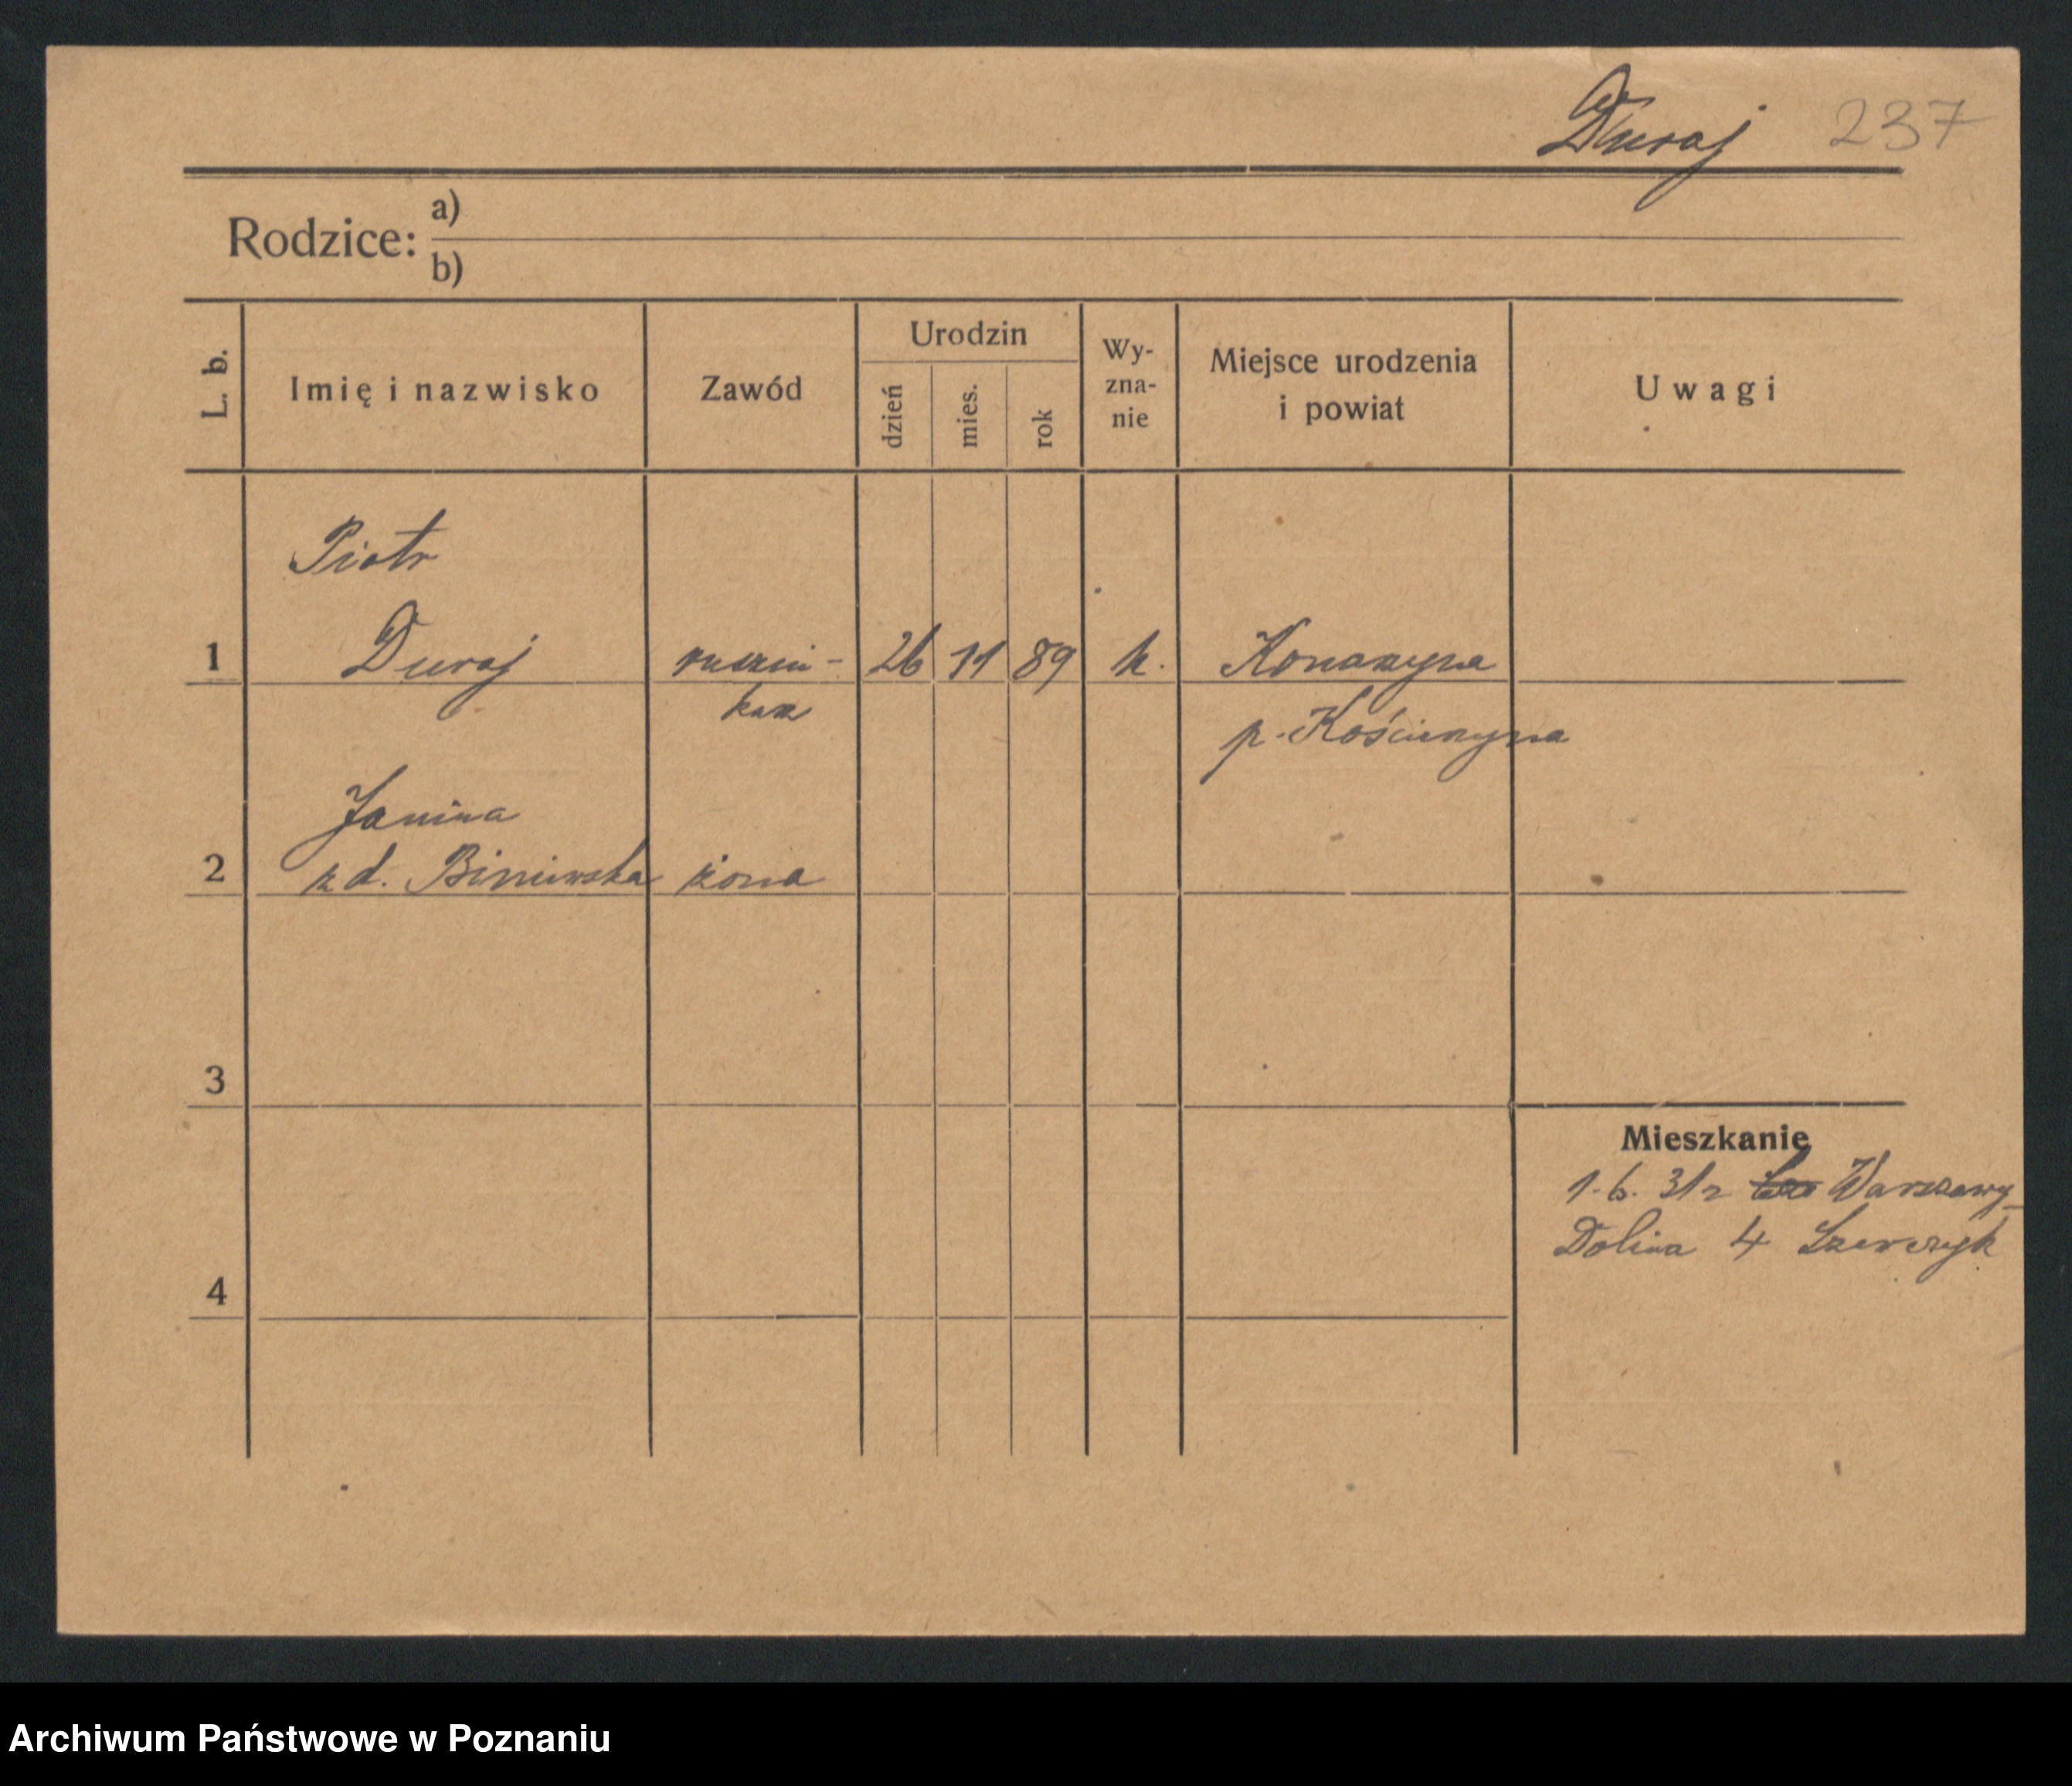 Duraj 237
Rodzice: a)
b)
L. b.
Imię i nazwisko
Zawód
Urodzin
dzień
mies.
rok
Wy-
zna-
nie
Miejsce urodzenia
i powiat
Uwagi
Piotr
1 Duraj ruszni- 26 11 89 k. Konarzyna
karz p. Kościerzyna
Janina
2 z d. Biniewska żona
3
Mieszkanie
1.6. 31 r Warszawy
Dolina 4 Szewczyk
4
Archiwum Państwowe w Poznaniu